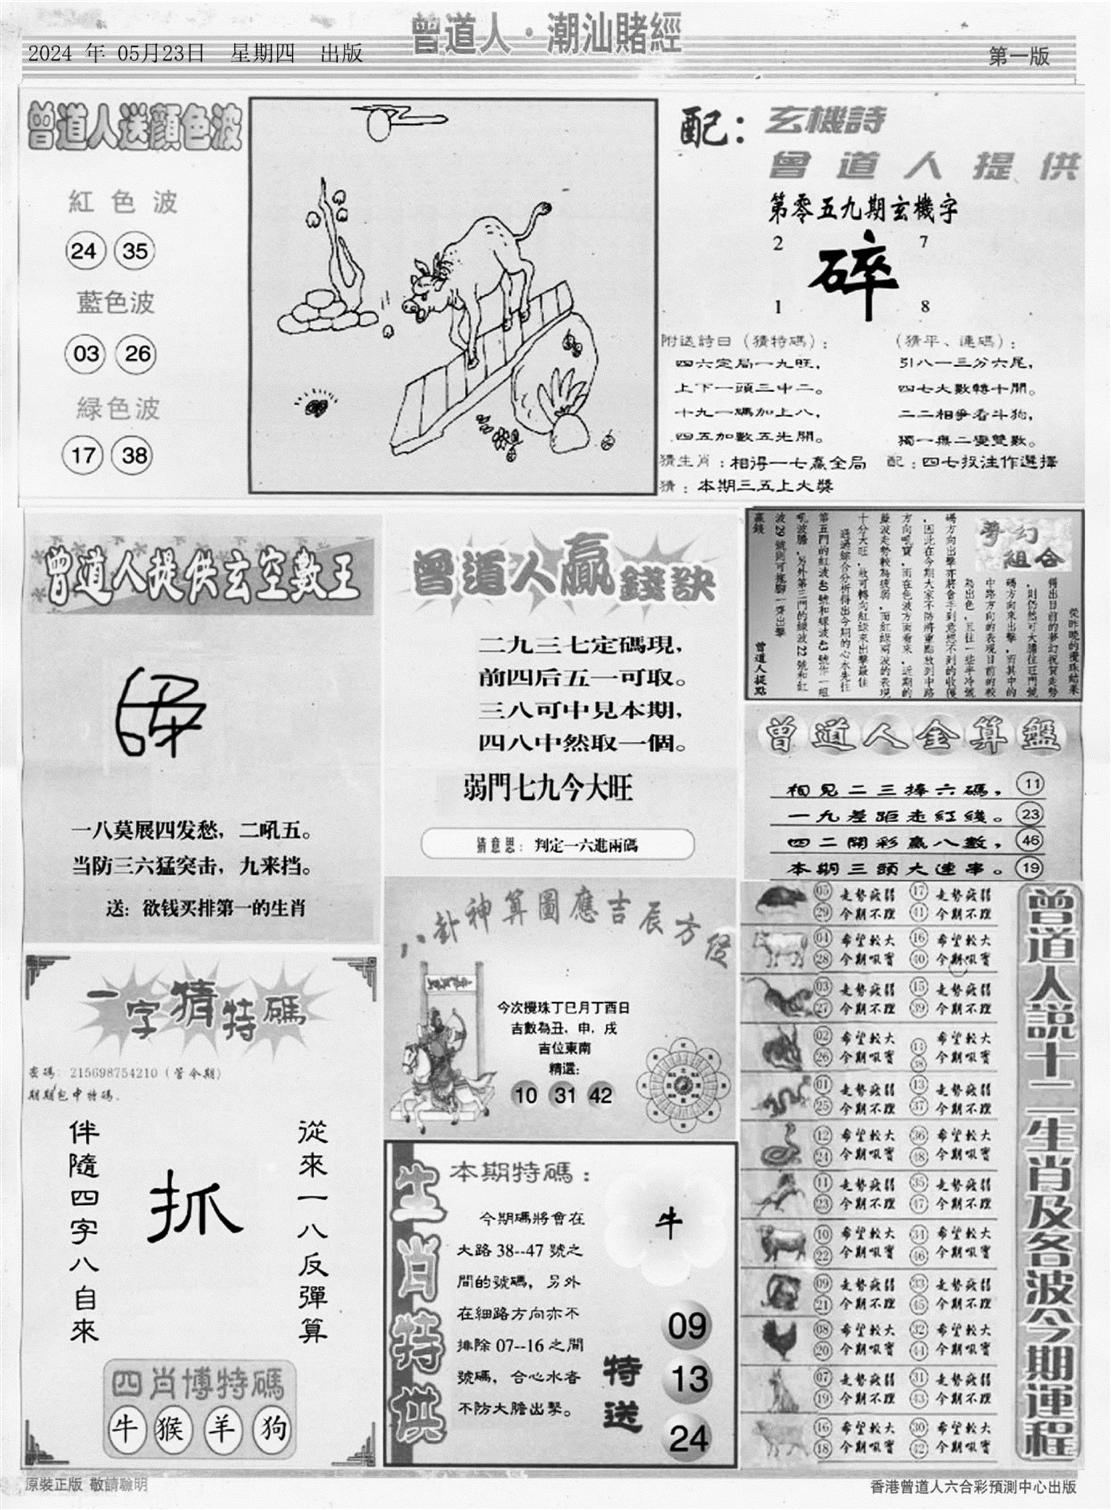 曾道人·潮汕賭經
2024 年 05月23日 星期四 出版
第一版
曾道人送顔色波
紅色波
24 35
藍色波
03 26
緑色波
17 38
配：玄機詩
曾道人提供
第零五九期玄機字
2 7
碎
1 8
附送詩日（猜特碼）：
四六定局一九旺，
上下一頭三中二。
十九一碼加上八，
四五加數五先開。
（猜平、連碼）：
引八一三分六尾，
四七大數轉十開。
二二相爭看斗狗，
獨一無二變雙數。
猜生肖：相得一七贏全局 配：四七投注作選擇
猜：本期三五上大獎
曾道人提供玄空數王
一八莫展四发愁，二吼五。
当防三六猛突击，九来挡。
送：欲钱买排第一的生肖
曾道人贏錢訣
二九三七定碼現，
前四后五一可取。
三八可中見本期，
四八中然取一個。
弱門七九今大旺
猜意思：判定一六進兩碼
夢幻組合
曾道人提點
曾道人金算盤
相見二三捧六碼， 11
一九差距走紅綫。 23
四二開彩贏八數， 46
本期三頭大連串。 19
八卦神算圖應吉辰方位
今次攪珠丁巳月丁酉日
吉數為丑，申，戌
吉位東南
精選：
10 31 42
一字猜特碼
密碼：215698754210（管令期）
期期包中特碼.
從來一八反彈算
抓
伴隨四字八自來
四肖博特碼
牛 猴 羊 狗
生肖特供
本期特碼：
今期碼將會在
大路 38--47 號之
間的號碼，另外
在細路方向亦不
排除 07--16 之間
號碼，合心水者
不防大膽出擊。
牛
特送
09
13
24
曾道人説十二生肖及各波今期運程
05 走勢疲弱 17 走勢疲弱
29 今期不理 41 今期不理
04 希望較大 16 希望較大
28 今期吼實 40 今期吼實
03 走勢疲弱 15 走勢疲弱
27 今期不理 39 今期不理
02 希望較大
26 今期吼實
01 走勢疲弱 13 走勢疲弱
25 今期不理 37 今期不理
12 希望較大 36 希望較大
24 今期吼實 48 今期吼實
11 走勢疲弱 35 走勢疲弱
23 今期不理 47 今期不理
10 希望較大 34 希望較大
22 今期吼實 46 今期吼實
09 走勢疲弱 33 走勢疲弱
21 今期不理 45 今期不理
08 希望較大 32 希望較大
20 今期吼實 44 今期吼實
07 走勢疲弱 31 走勢疲弱
19 今期不理 43 今期不理
16 希望較大 30 希望較大
18 今期吼實 42 今期吼實
原裝正版 敬請聯明
香港曾道人六合彩預測中心出版